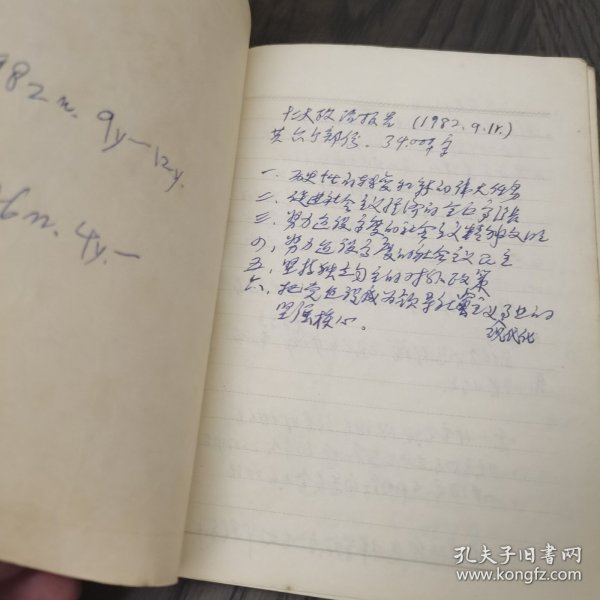 982n. 9y—12y.
6n. 4y.—
十二大政治报告 (1982.9.1.)
共六个部份. 34000字
一. 历史性的转变和新的伟大任务
二. 促进社会主义经济的全面高涨
三. 努力建设高度的社会主义精神文明
四, 努力建设高度的社会主义民主
五. 坚持独立自主的对外政策
六. 把党建设成为领导社会主义事业的
坚强核心。
现代化
孔夫子旧书网
www.kongfz.com